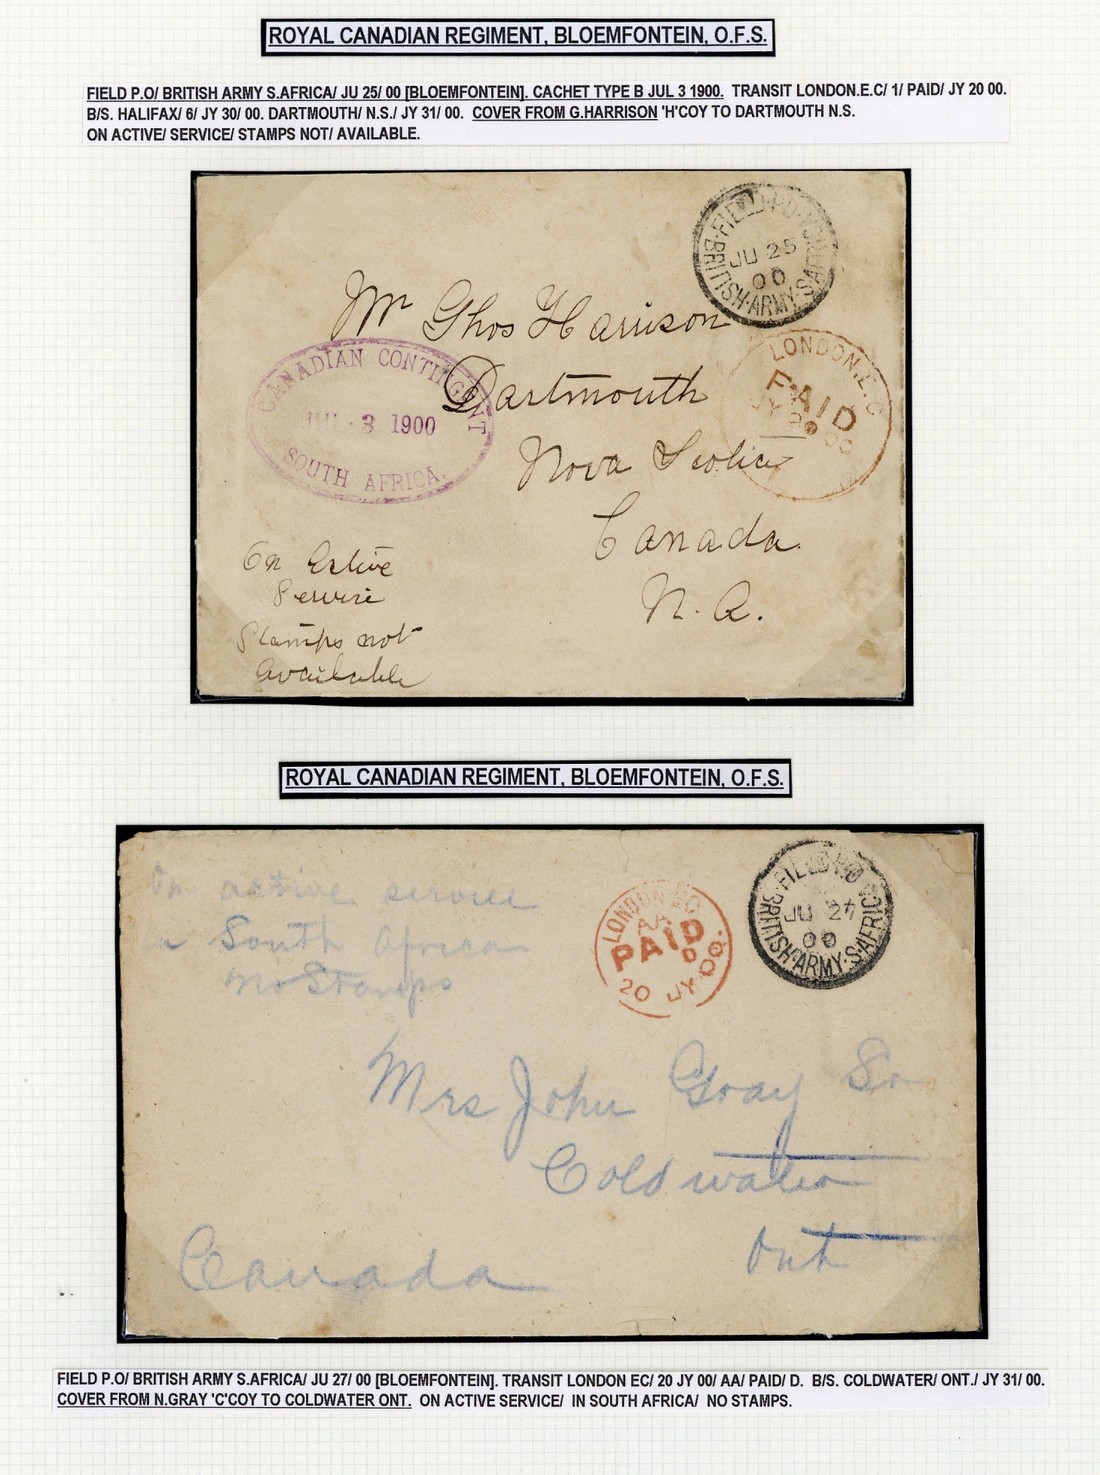 ROYAL CANADIAN REGIMENT, BLOEMFONTEIN, O.F.S.
FIELD P.O/ BRITISH ARMY S.AFRICA/ JU 25/ 00 [BLOEMFONTEIN]. CACHET TYPE B JUL 3 1900. TRANSIT LONDON.E.C/ 1/ PAID/ JY 20 00.
B/S. HALIFAX/ 6/ JY 30/ 00. DARTMOUTH/ N.S./ JY 31/ 00. COVER FROM G.HARRISON 'H'COY TO DARTMOUTH N.S.
ON ACTIVE/ SERVICE/ STAMPS NOT/ AVAILABLE.
FIELD·P.O·
JU 25
00
BRITISH·ARMY·S.AFRICA
Mr Ghos Harrison
Dartmouth
Nova Scotia
Canada
N. A.
CANADIAN CONTINGENT
JUL · 3 1900
SOUTH AFRICA.
LONDON.E.C
PAID
JY 20 00
On Active
Service
Stamps not
Available
ROYAL CANADIAN REGIMENT, BLOEMFONTEIN, O.F.S.
On active service
in South African
No Stamps
LONDON EC
AA
PAID
D
20 JY 00
FIELD P.O
JU 27
00
BRITISH·ARMY·S.AFRICA
Mrs John Gray Sr
Coldwater
Ont
Canada
FIELD P.O/ BRITISH ARMY S.AFRICA/ JU 27/ 00 [BLOEMFONTEIN]. TRANSIT LONDON EC/ 20 JY 00/ AA/ PAID/ D. B/S. COLDWATER/ ONT./ JY 31/ 00.
COVER FROM N.GRAY 'C'COY TO COLDWATER ONT. ON ACTIVE SERVICE/ IN SOUTH AFRICA/ NO STAMPS.